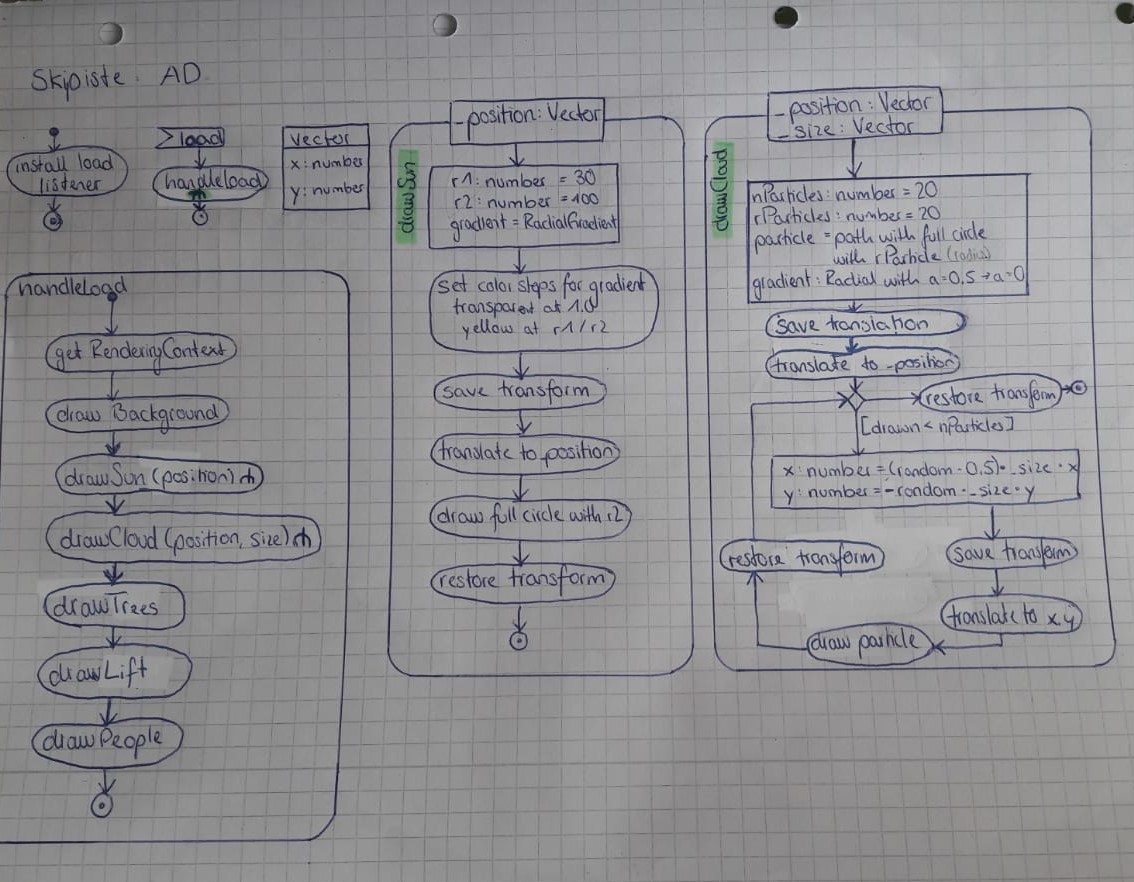 Skipiste AD
install load
listener
load
handleload
Vector
x: number
y: number
handleLoad
get RenderingContext
draw Background
drawSun (position)
drawCloud (position, size)
drawTrees
drawLift
drawPeople
drawSun
_position: Vector
r1: number = 30
r2: number = 100
gradient = RadialGradient
set color steps for gradient
transparent at 1.0
yellow at r1/r2
save transform
translate to _position
draw full circle with r2
restore transform
drawCloud
_position: Vector
_size: Vector
nParticles: number = 20
rParticles: number = 20
particle = path with full circle
with rParticle (radius)
gradient: Radial with a=0,5→a=0
save translation
translate to _position
restore transform
[drawn < nParticles]
x: number = (random - 0,5) · _size · x
y: number = -random · _size · y
restore transform
save transform
translate to x,y
draw particle